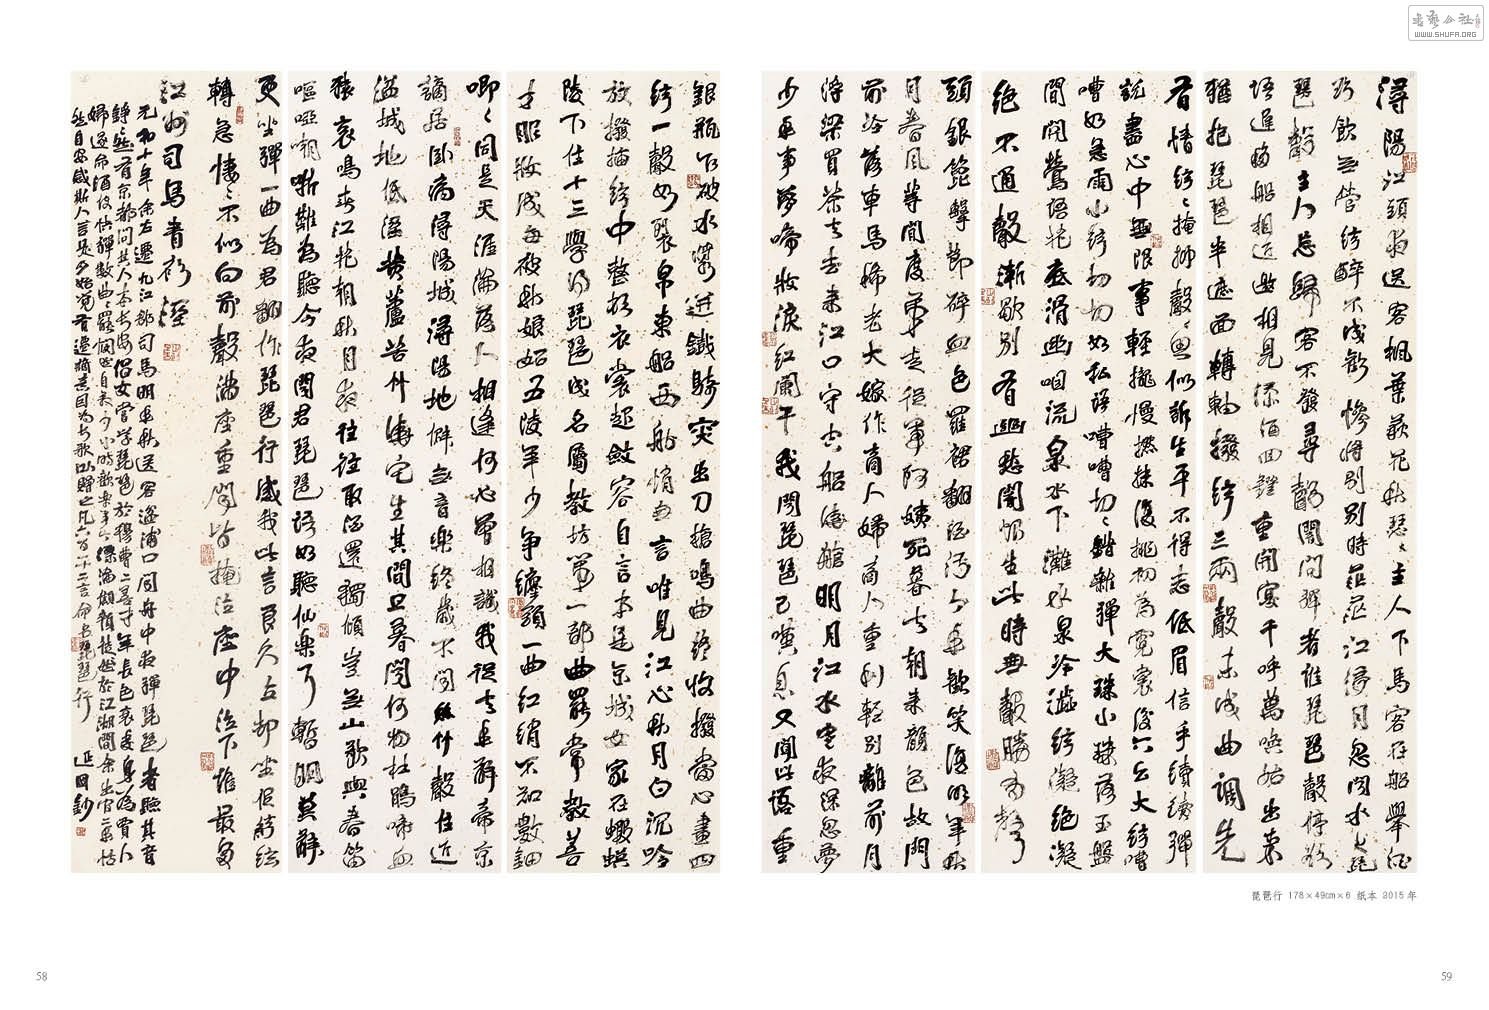 潯陽江頭夜送客楓葉荻花秋瑟〻主人下馬客在船舉酒
欲飲無管絃醉不成歡慘將別別時茫茫江浸月忽聞水上琵
琶聲主人忘歸客不發尋聲闇問彈者誰琵琶聲停欲
語遲移船相近邀相見添酒回鐙重開宴千呼萬喚始出來
猶抱琵琶半遮面轉軸撥絃三兩聲未成曲調先
有情絃〻掩抑聲〻思似訴生平不得志低眉信手續續彈
說盡心中無限事輕攏慢撚抹復挑初為霓裳後六幺大絃嘈
嘈如急雨小絃切切如私語嘈嘈切〻錯雜彈大珠小珠落玉盤
間關鶯語花底滑幽咽流泉水下灘水泉冷澀絃凝絕凝
絕不通聲漸歇別有幽愁闇恨生此時無聲勝有聲
銀瓶乍破水漿迸鐵騎突出刀槍鳴曲終收撥當心畫四
絃一聲如裂帛東船西舫悄無言唯見江心秋月白沉吟
放撥插絃中整頓衣裳起斂容自言本是京城女家在蝦蟆
陵下住十三學得琵琶成名屬教坊第一部曲罷常教善
才服妝成每被秋娘妬五陵年少爭纏頭一曲紅綃不知數鈿
頭銀篦擊節碎血色羅裙翻酒污今年歡笑復明年秋
月春風等閒度弟走從軍阿姨死暮去朝來顏色故門
前冷落車馬稀老大嫁作商人婦商人重利輕別離前月
浮梁買茶去去來江口守空船繞艙明月江水寒夜深忽夢
少年事夢啼妝淚紅闌干我聞琵琶已嘆息又聞此語重
唧〻同是天涯淪落人相逢何必曾相識我從去年辭帝京
謫居臥病潯陽城潯陽地僻無音樂終歲不聞絲竹聲住近
湓城地低溼黃蘆苦竹繞宅生其間旦暮聞何物杜鵑啼血
猿哀鳴春江花朝秋月夜往往取酒還獨傾豈無山歌與春笛
嘔啞嘲哳難為聽今夜聞君琵琶語如聽仙樂耳暫明莫辭
更坐彈一曲為君翻作琵琶行感我此言良久立卻坐促絃絃
轉急悽〻不似向前聲滿座重聞皆掩泣座中泣下誰最多
江州司馬青衫溼
元和十年余左遷九江郡司馬明年秋送客湓浦口聞舟中夜彈琵琶者聽其音
錚〻然有京都聲問其人本長安倡女嘗學琵琶於穆曹二善才年長色衰委身為賈人
婦遂命酒使快彈數曲曲罷憫然自敘少小時歡樂事今漂淪憔悴轉徙於江湖間余出官二年恬
然自安感斯人言是夕始覺有遷謫意因為長歌以贈之凡六百十二言命曰琵琶行
琵琶行 178×49cm×6 紙本 2015年
58
59
WWW.SHUFA.ORG